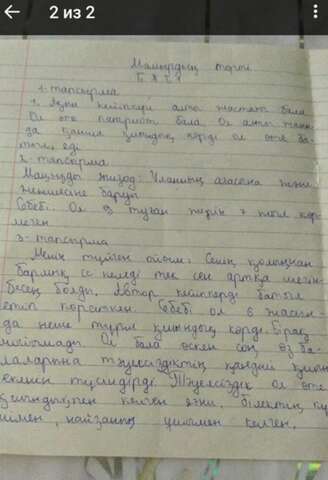 2 из 2
Мамырдың төрті
БЖБ 1
1-тапсырма
1. Яғни кейіпкері алты жастағы бала
Ол өте патриот бала. Ол алты жасын
да қанша қиындық көрді ол өте ба
тыл еді
2-тапсырма
Маңызды эпизод: Ұланның ағасына және
жеңгесіне баруы
Себебі: Ол өз туған жерін 7 жыл көр
меген
3-тапсырма
Менің түйген ойым: Сенің қолыңнан
барлық іс келеді тек сен артқа шегін
бесең болды. Автор кейіпкерді батыл
етіп көрсеткен. Себебі ол 6 жасын
да неше түрлі қиындық көрді. Бірақ
мойымады. Ол бала өскен соң өз ба
лаларына тәуелсіздіктің қандай қиын
екенін түсіндірді. Тәуелсіздік ол өте
қиындықпен келген яғни, білектің кү
шімен, найзаның ұшымен келген.